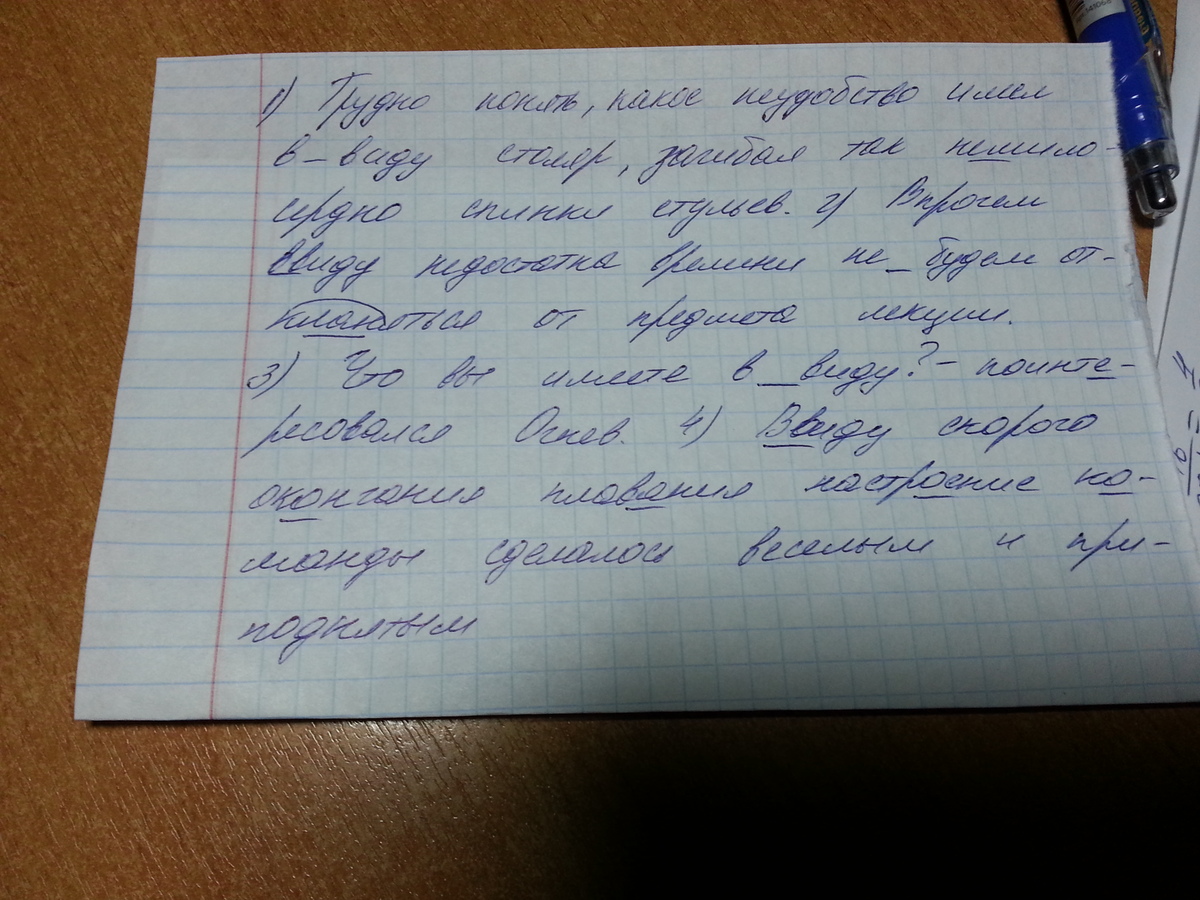 1) Трудно понять, какое неудобство имел
в_виду столяр, загибая так немило-
сердно спинки стульев. 2) Впрочем
ввиду недостатка времени не_будем от-
кланяться от предмета лекции.
3) Что вы имеете в_виду? - поинте-
ресовался Огнев. 4) Ввиду скорого
окончания плавания настроение ко-
манды сделалось веселым и при-
поднятым